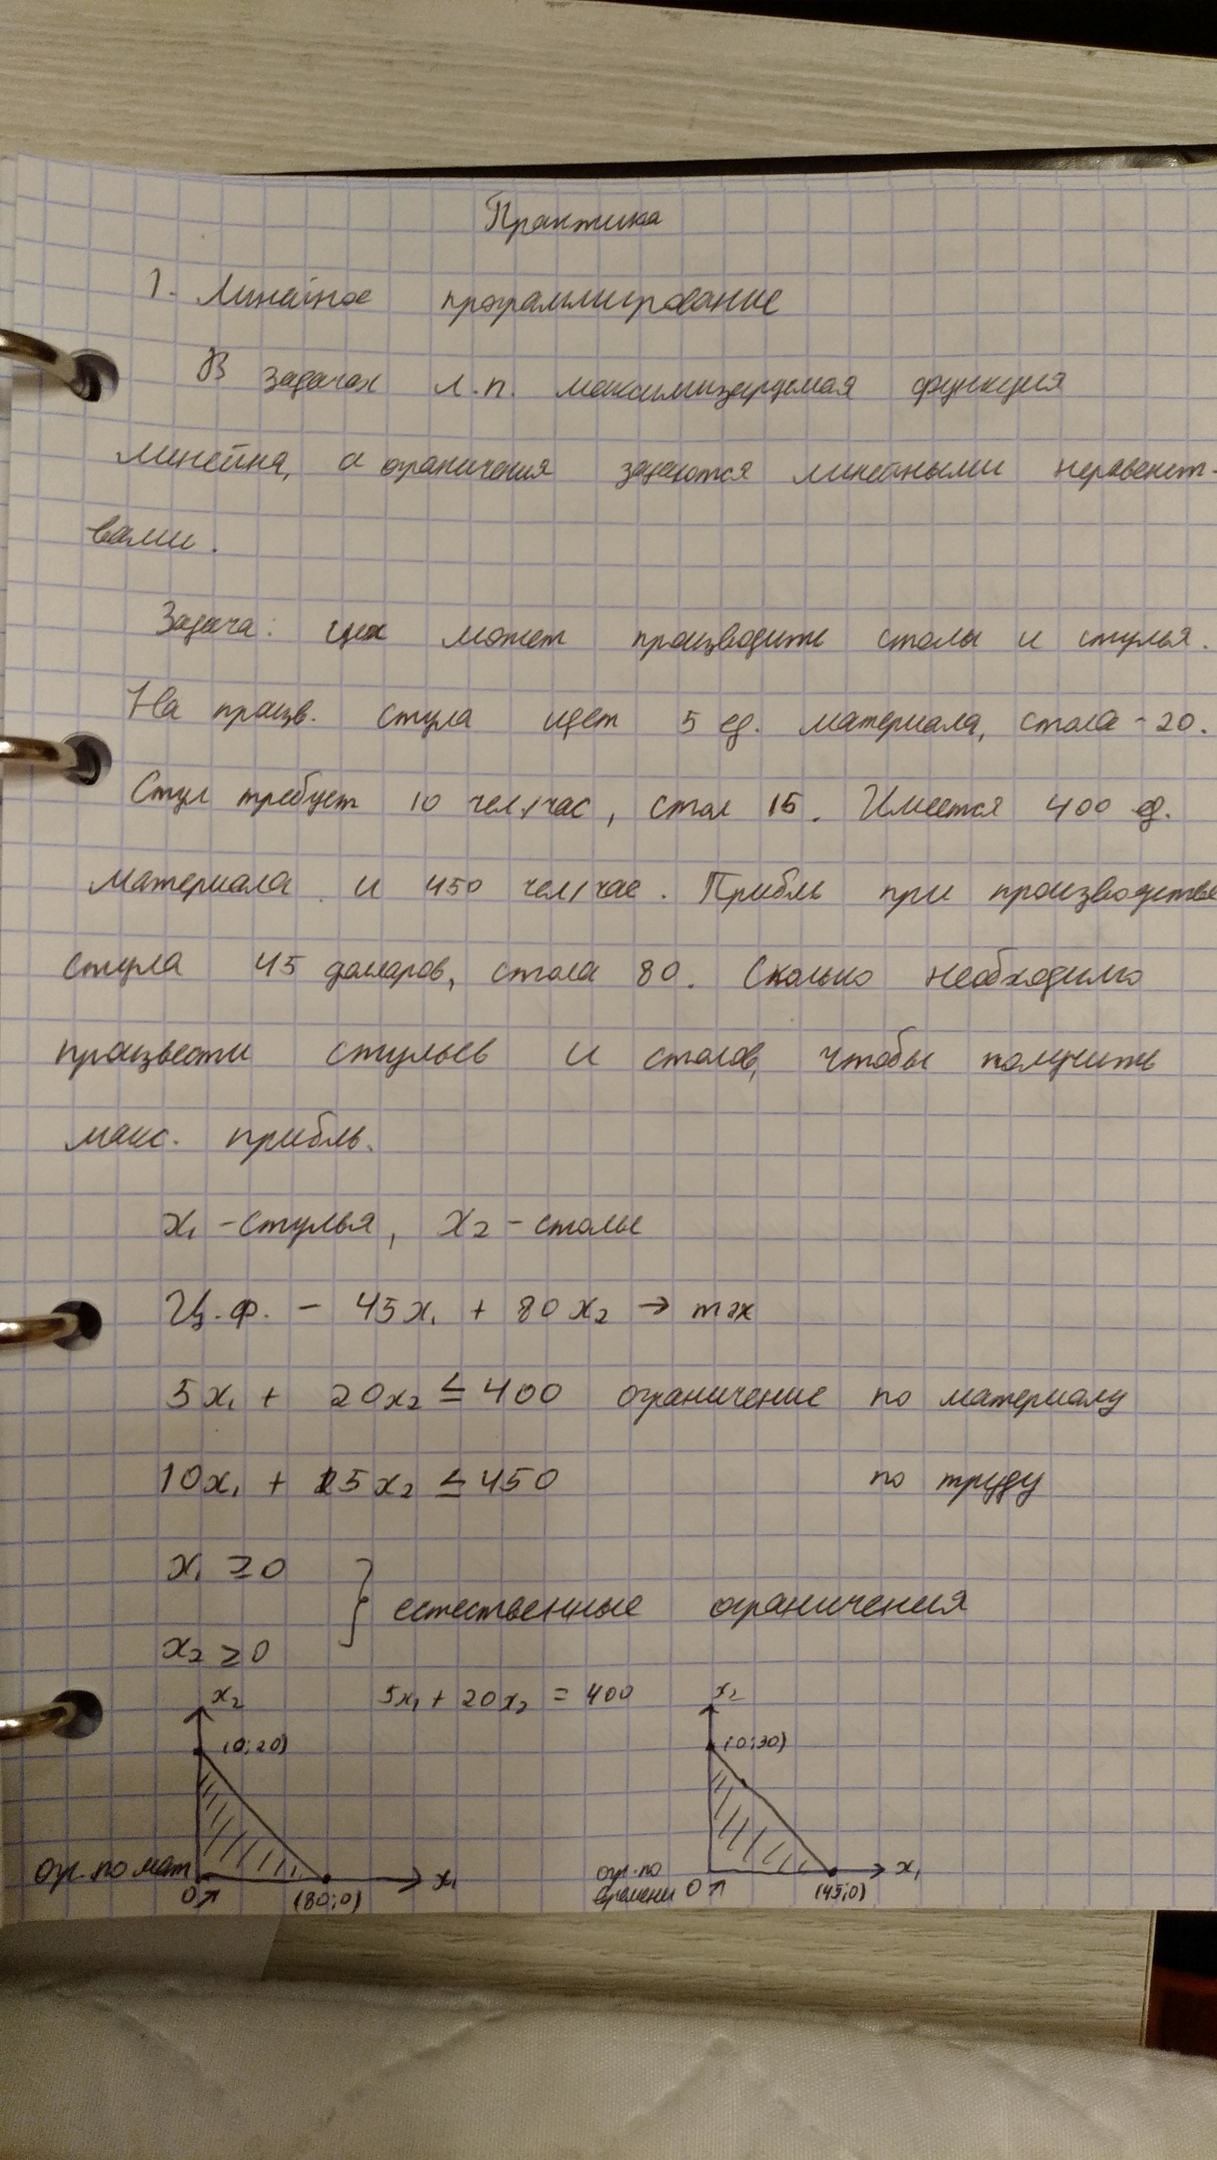 Практика
1. Линейное программирование
В задачах л.п. максимизируемая функция
линейна, а ограничения задаются линейными неравенст-
вами.
Задача: цех может производить столы и стулья.
На произв. стула идет 5 ед. материала, стола - 20.
Стул требует 10 чел/час, стол 15. Имеется 400 ед.
материала и 450 чел/час. Прибль при производстве
стула 45 долларов, стола 80. Сколько необходимо
произвести стульев и столов, чтобы получить
макс. прибль.
x₁ - стулья, x₂ - столы
Ц.ф. - 45x₁ + 80x₂ → max
5x₁ + 20x₂ ≤ 400 ограничение по материалу
10x₁ + 15x₂ ≤ 450 по труду
x₁ ≥ 0
} естественные ограничения
x₂ ≥ 0
x₂ 5x₁ + 20x₂ = 400 x₂
(0;20) (0;30)
огр. по мат x₁ огр. по x₁
0 (80;0) времени 0 (45;0)